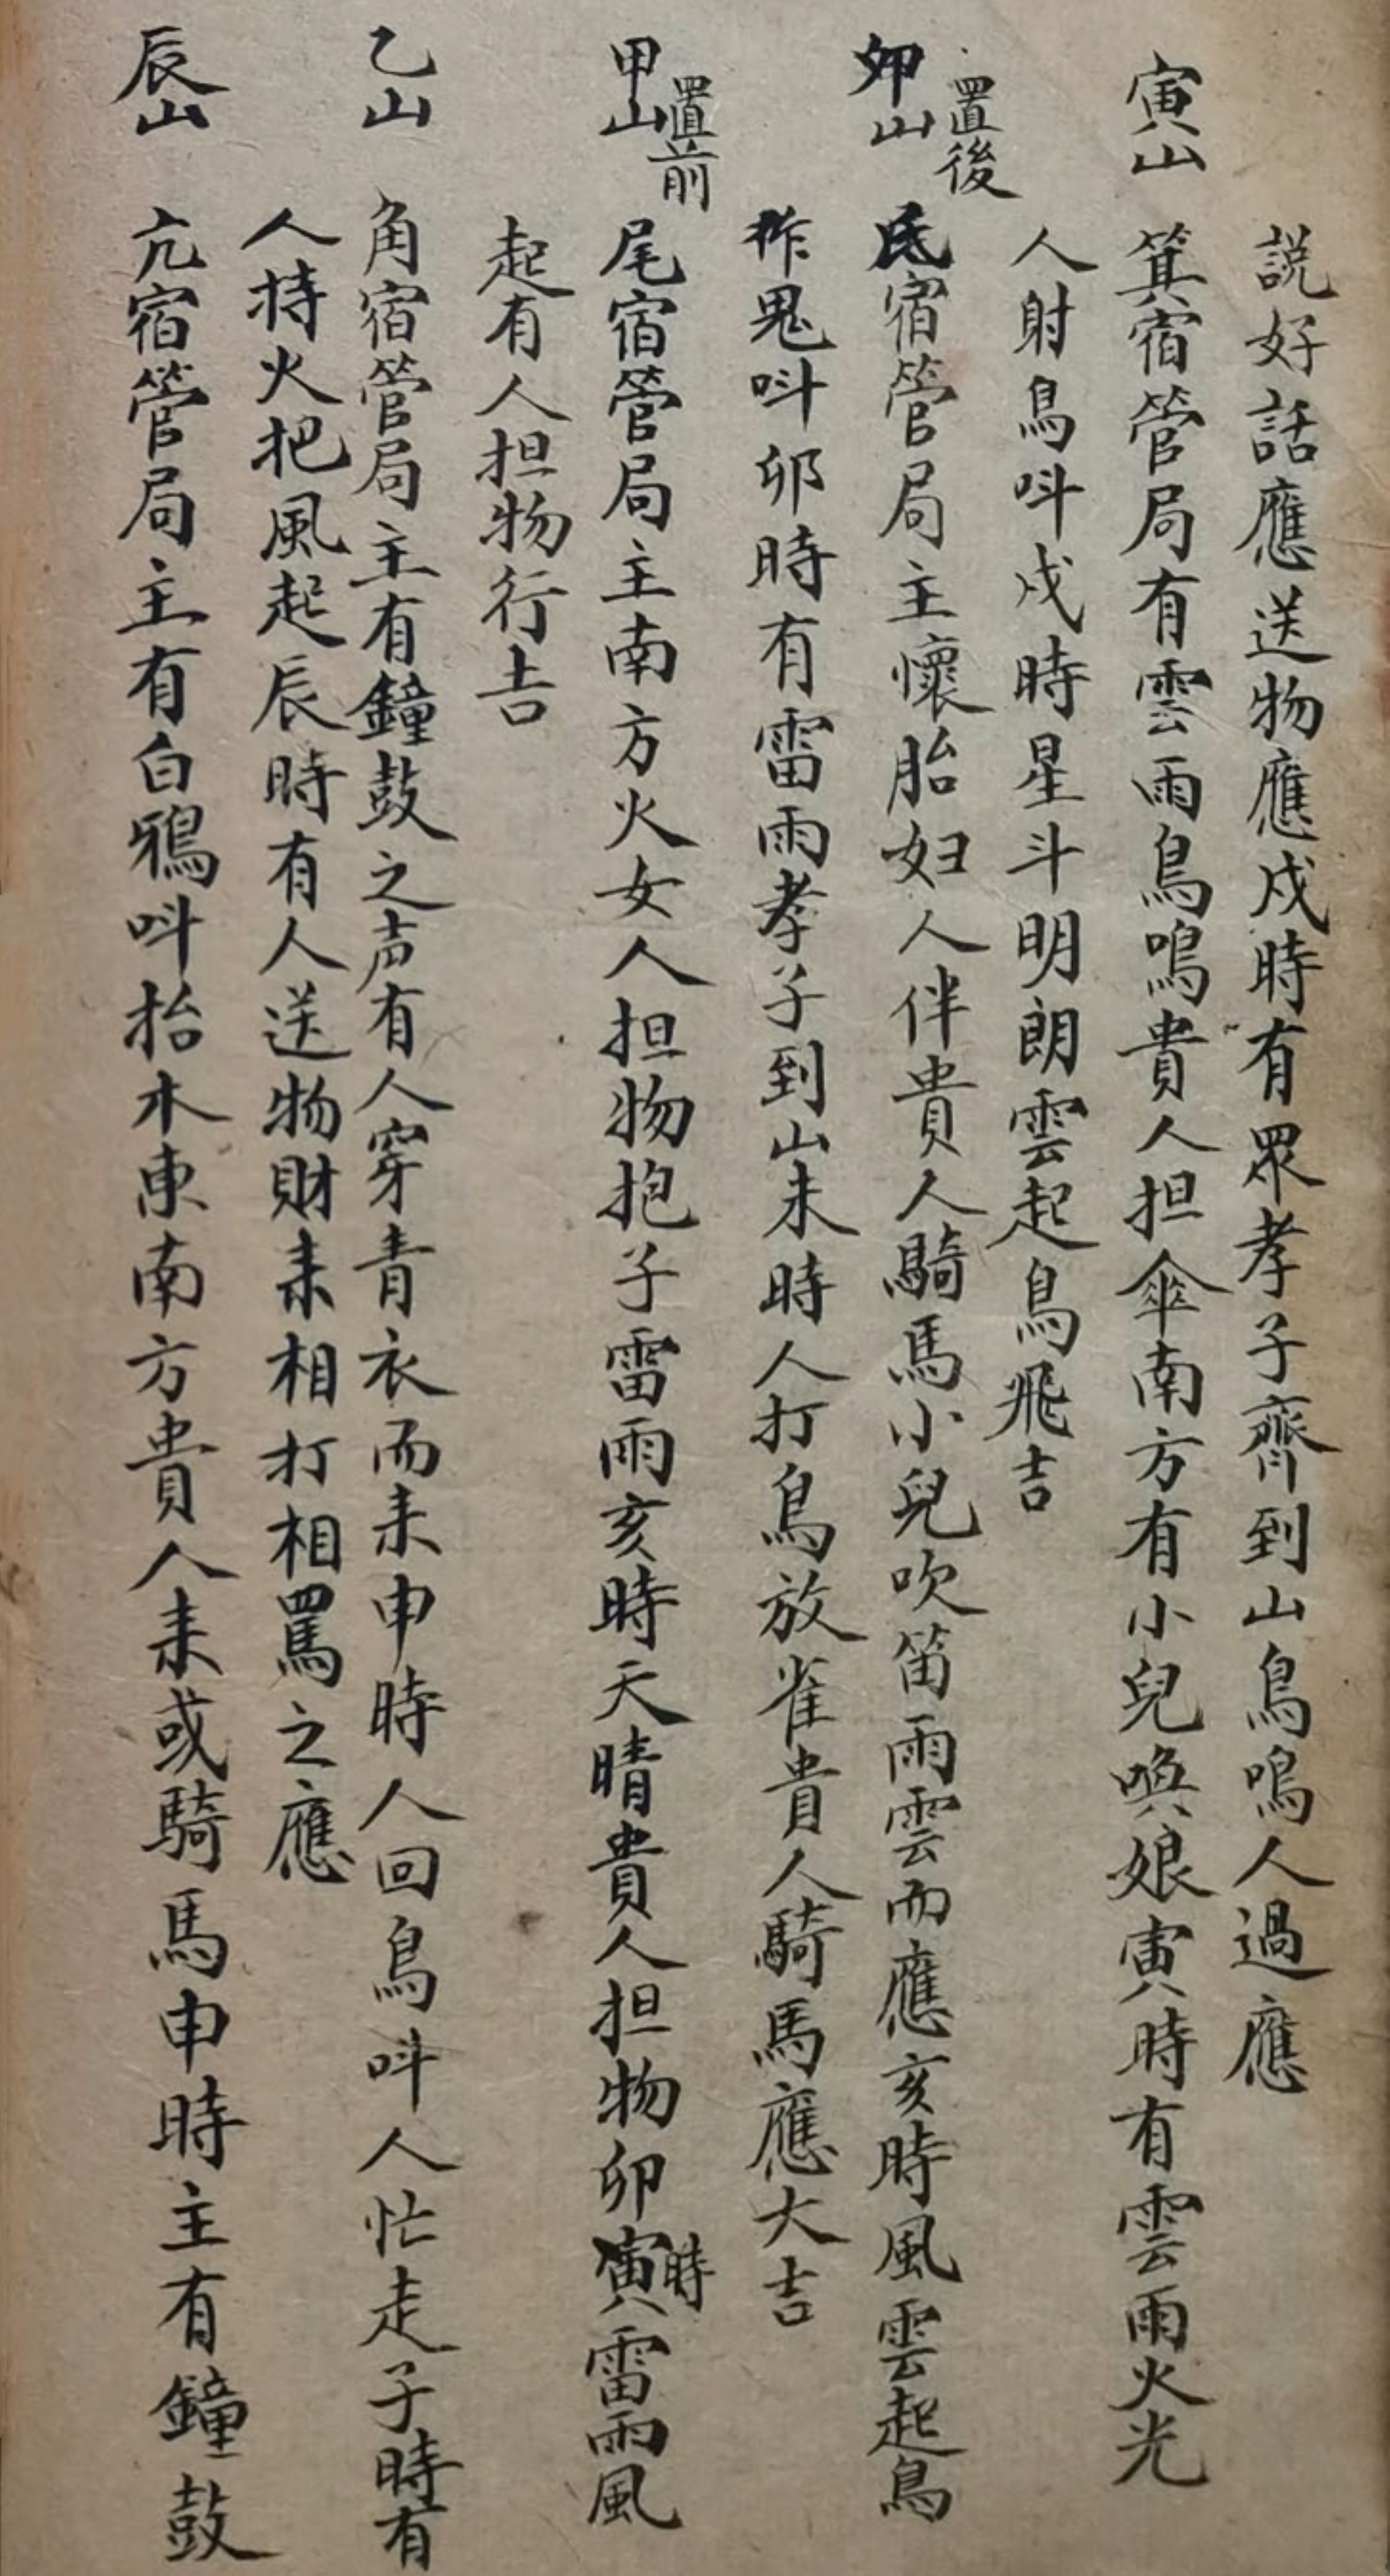 説好話應送物應戍時有眾孝子齊到山鳥鳴人過應
寅山 箕宿管局有雲雨鳥鳴貴人担傘南方有小兒喚娘寅時有雲雨火光
人射鳥呌戍時星斗明朗雲起鳥飛吉
置後
卯山 氐宿管局主懷胎妇人伴貴人騎馬小兒吹笛雨雲而應亥時風雲起鳥
鬼呌卯時有雷雨孝子到山未時人打鳥放雀貴人騎馬應大吉
置前
甲山 尾宿管局主南方火女人担物抱子雷雨亥時天晴貴人担物卯寅時雷雨風
起有人担物行吉
乙山 角宿管局主有鐘鼓之声有人穿青衣而耒申時人回鳥呌人忙走子時有
人持火把風起辰時有人送物財耒相打相罵之應
辰山 亢宿管局主有白鴉呌抬木東南方貴人耒或騎馬申時主有鐘鼓